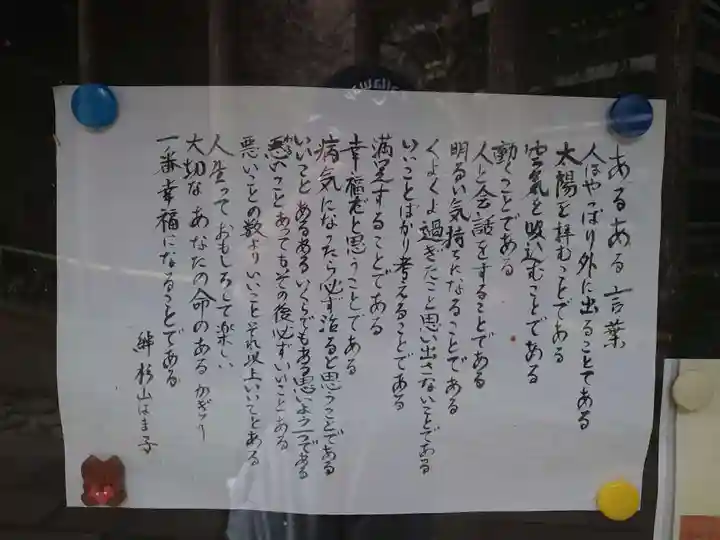 あるある言葉
人はやっぱり外に出ることである
太陽を拝むことである
空気を吸い込むことである
動くことである
人と会話をすることである
明るい気持ちになることである
くよくよ過ぎたこと思い出さないことである
いいことばかり考えることである
満足することである
幸福だと思うことである
病気になったら必ず治ると思うことである
いいことあるあるいくらでもある思いようである
悪いことあってもその後必ずいいことある
悪いことの数よりいいことそれ以上いいことある
人生っておもしろくて楽しい
大切なあなたの命のあるかぎり
一番幸福になることである
杉山はま子